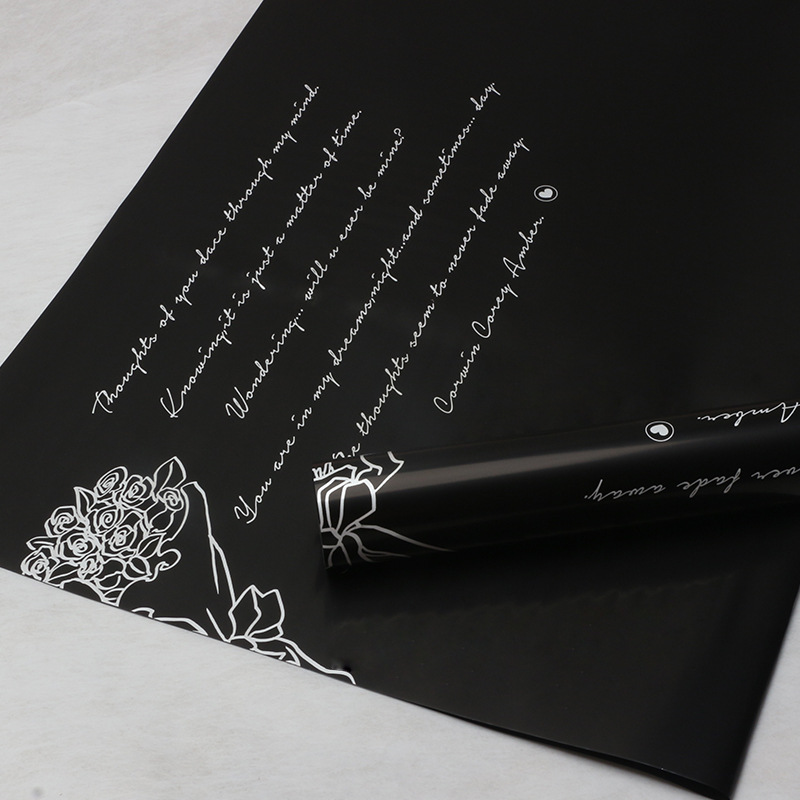 Thoughts of you dace through my mind.
Knowing,it is just a matter of time.
Wondering... will u ever be mine?
You are in my dreams,night...and sometimes... day.
thoughts seem to never fade away.
Corwin Corey Amber.
Amber.
fade away.